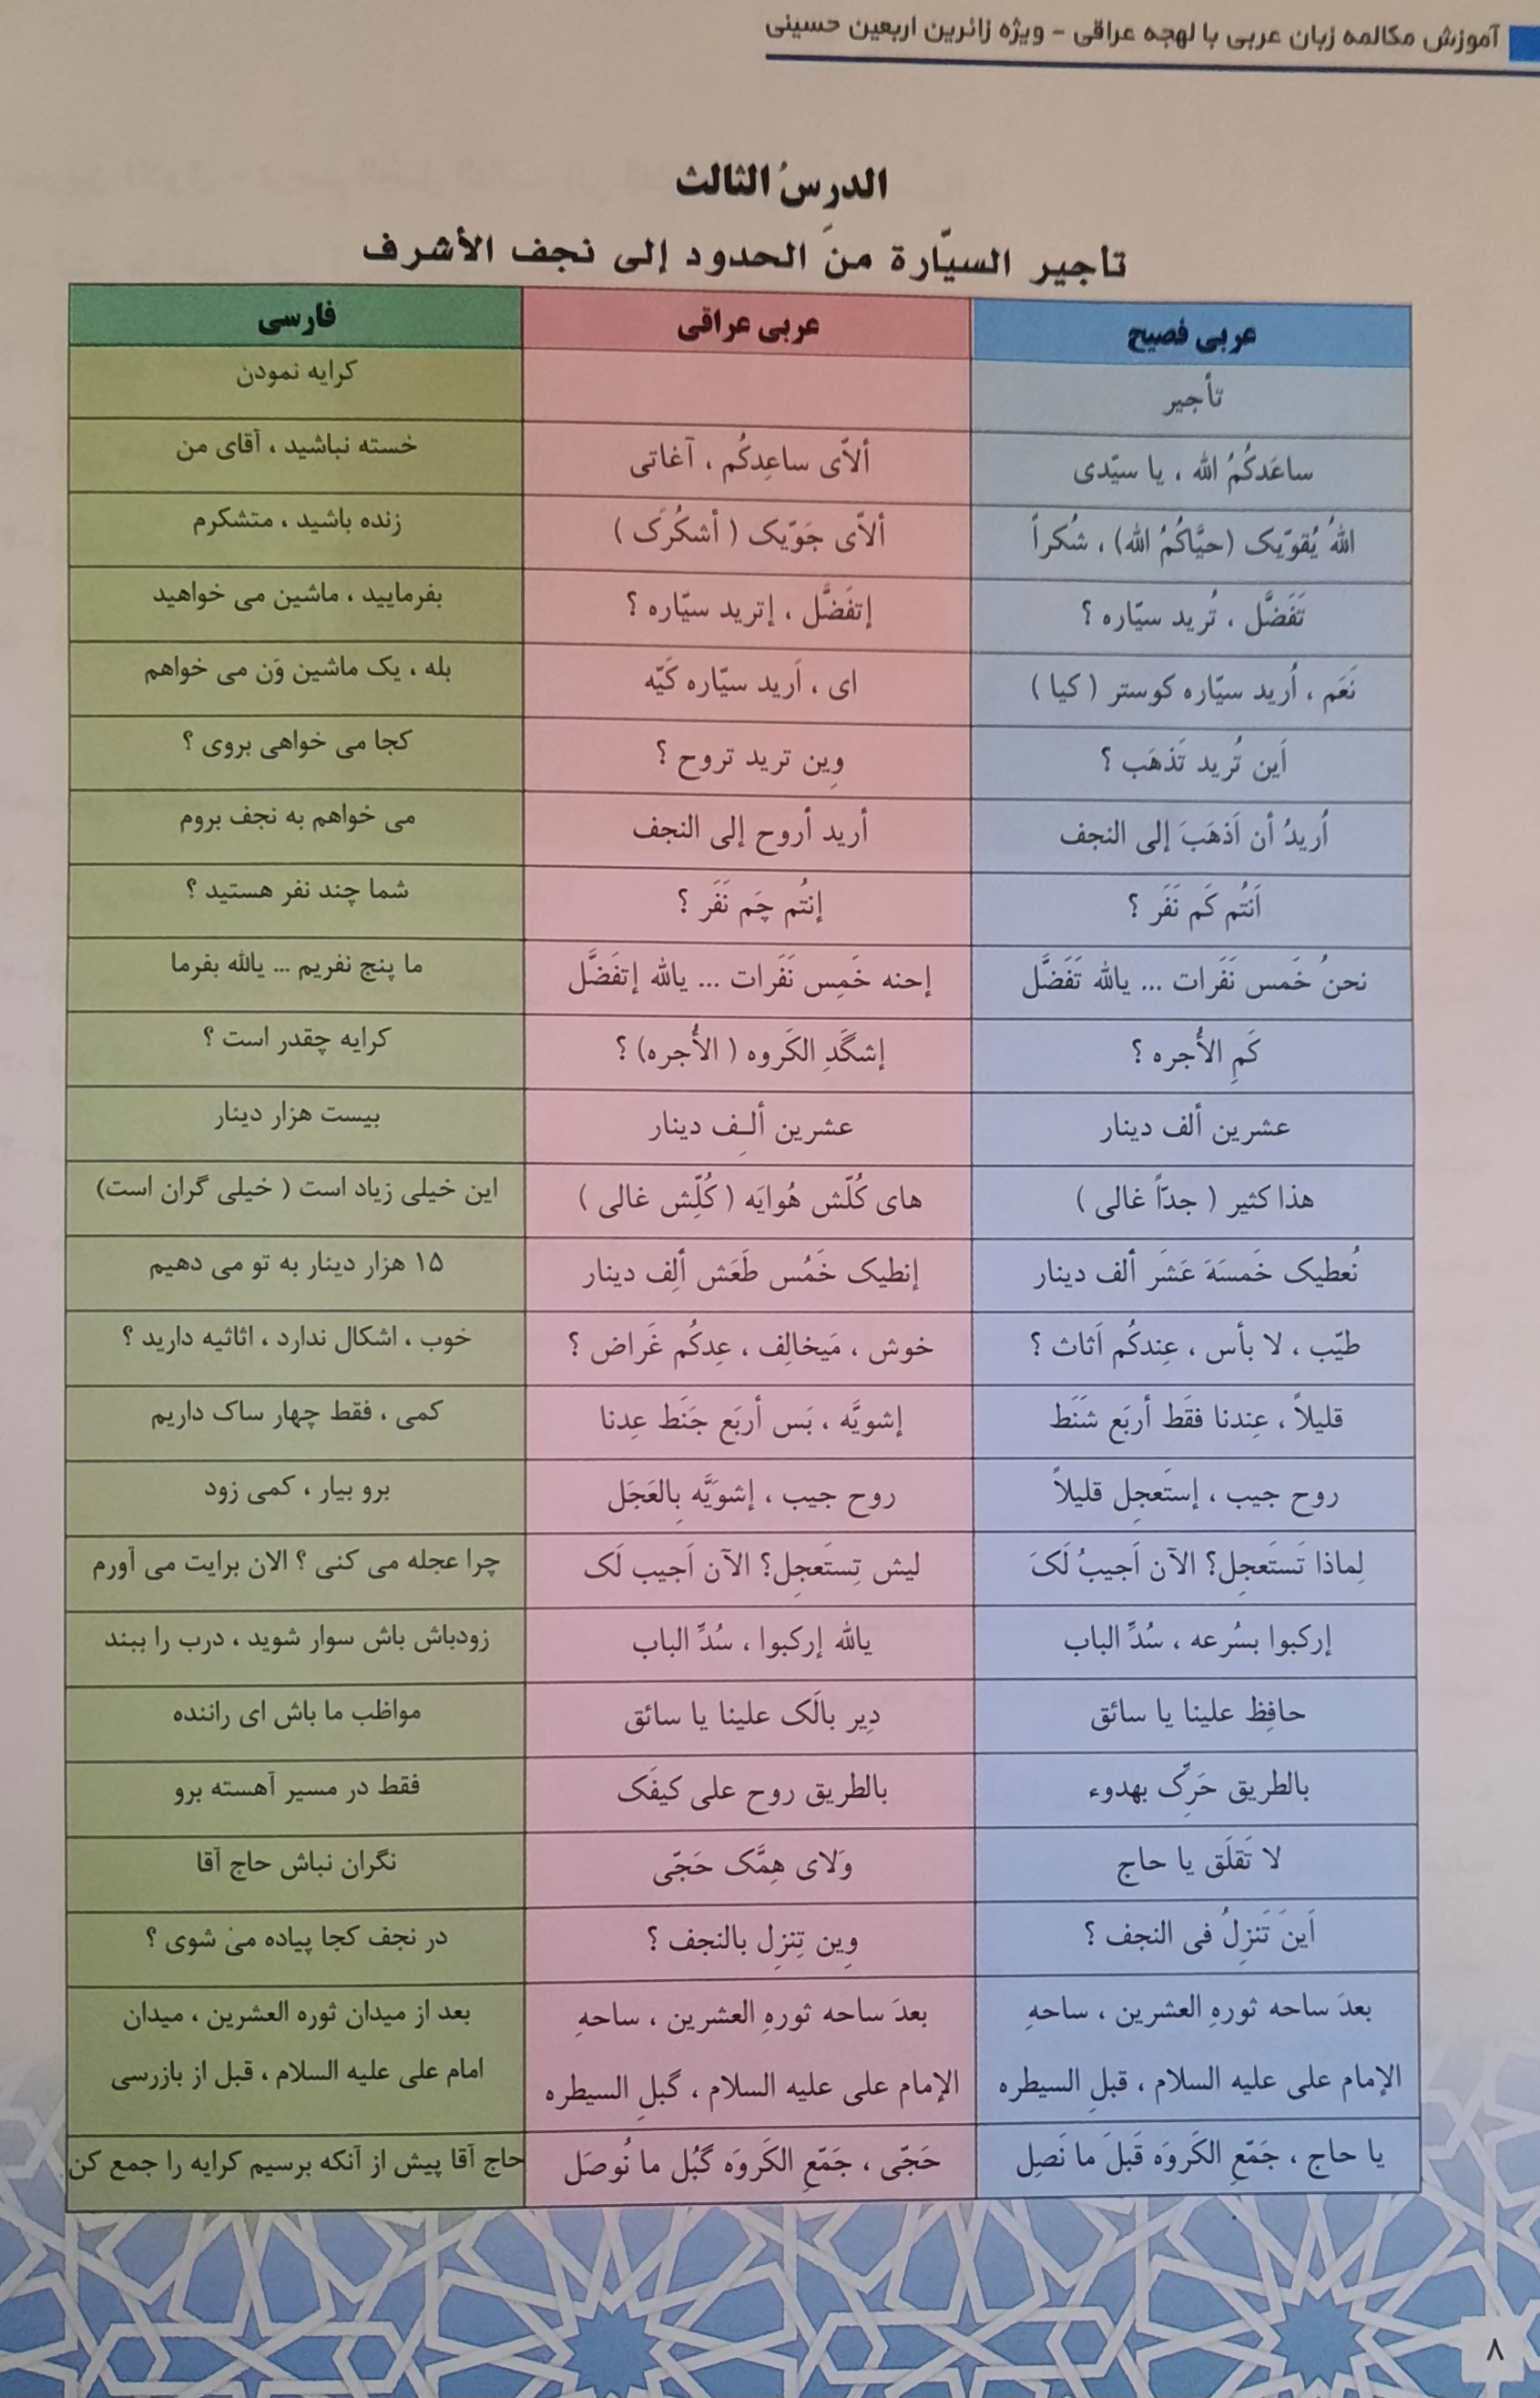 آموزش مکالمه زبان عربی با لهجه عراقی - ویژه زائرین اربعین حسینی
الدرسُ الثالث
تأجیر السیّارة منَ الحدود إلی نجف الأشرف
عربی فصیح عربی عراقی فارسی
تأجیر کرایه نمودن
ساعَدکُمُ الله ، یا سیّدی ألاّی ساعِدکُم ، آغاتی خسته نباشید ، آقای من
اللهُ یُقوّیک (حیَّاکُمُ الله) ، شُکراً ألاّی جَوّیک ( أشکُرَک ) زنده باشید ، متشکرم
تَفَضَّل ، تُرید سیّاره ؟ إتفَضَّل ، إترید سیّاره ؟ بفرمایید ، ماشین می خواهید
نَعَم ، اُرید سیّاره کوستر ( کیا ) ای ، اَرید سیّاره کَیّه بله ، یک ماشین وَن می خواهم
اَین تُرید تَذهَب ؟ وِین ترید تروح ؟ کجا می خواهی بروی ؟
اُریدُ أن اَذهَبَ إلی النجف أرید أروح إلی النجف می خواهم به نجف بروم
اَنتُم کَم نَفَر ؟ إنتُم چَم نَفَر ؟ شما چند نفر هستید ؟
نحنُ خَمس نَفَرات ... یالله تَفَضَّل إحنه خَمِس نَفَرات ... یالله إتفَضَّل ما پنج نفریم ... یالله بفرما
کَمِ الأُجره ؟ إشگَدِ الکَروه ( الأُجره) ؟ کرایه چقدر است ؟
عشرین ألف دینار عشرین ألـِف دینار بیست هزار دینار
هذا کثیر ( جدّاً غالی ) های کُلّش هُوایَه ( کُلِّش غالی ) این خیلی زیاد است ( خیلی گران است)
نُعطیک خَمسَهَ عَشَر ألف دینار إنطیک خَمُس طَعَش ألِف دینار ۱۵ هزار دینار به تو می دهیم
طیّب ، لا بأس ، عِندکُم اَثاث ؟ خوش ، مَیخالِف ، عِدکُم غَراض ؟ خوب ، اشکال ندارد ، اثاثیه دارید ؟
قلیلاً ، عِندنا فقَط أربَع شَنَط إشویَّه ، بَس أربَع جَنَط عِدنا کمی ، فقط چهار ساک داریم
روح جیب ، إستَعجِل قلیلاً روح جیب ، إشوَیَّه بِالعَجَل برو بیار ، کمی زود
لِماذا تَستَعجِل؟ الآن اَجیبُ لَکَ لیش تِستَعجِل؟ الآن اَجیب لَک چرا عجله می کنی ؟ الان برایت می آورم
إرکبوا بسُرعه ، سُدِّ الباب یالله إرکبوا ، سُدِّ الباب زودباش باش سوار شوید ، درب را ببند
حافِظ علینا یا سائق دِیر بالَک علینا یا سائق مواظب ما باش ای راننده
بالطریق حَرِّک بهدوء بالطریق روح علی کیفَک فقط در مسیر آهسته برو
لا تَقلَق یا حاج وَلای هِمَّک حَجّی نگران نباش حاج آقا
اَینَ تَنزِلُ فی النجف ؟ وِین تِنزِل بالنجف ؟ در نجف کجا پیاده می شوی ؟
بعدَ ساحه ثورهِ العشرین ، ساحهِ بعدَ ساحه ثورهِ العشرین ، ساحهِ بعد از میدان ثوره العشرین ، میدان
الإمام علی علیه السلام ، قبلِ السیطره الإمام علی علیه السلام ، گبلِ السیطره امام علی علیه السلام ، قبل از بازرسی
یا حاج ، جَمّعِ الکَروَه قَبلَ ما نَصِل حَجّی ، جَمّعِ الکَروَه گَبُل ما نُوصَل حاج آقا پیش از آنکه برسیم کرایه را جمع کن
۸